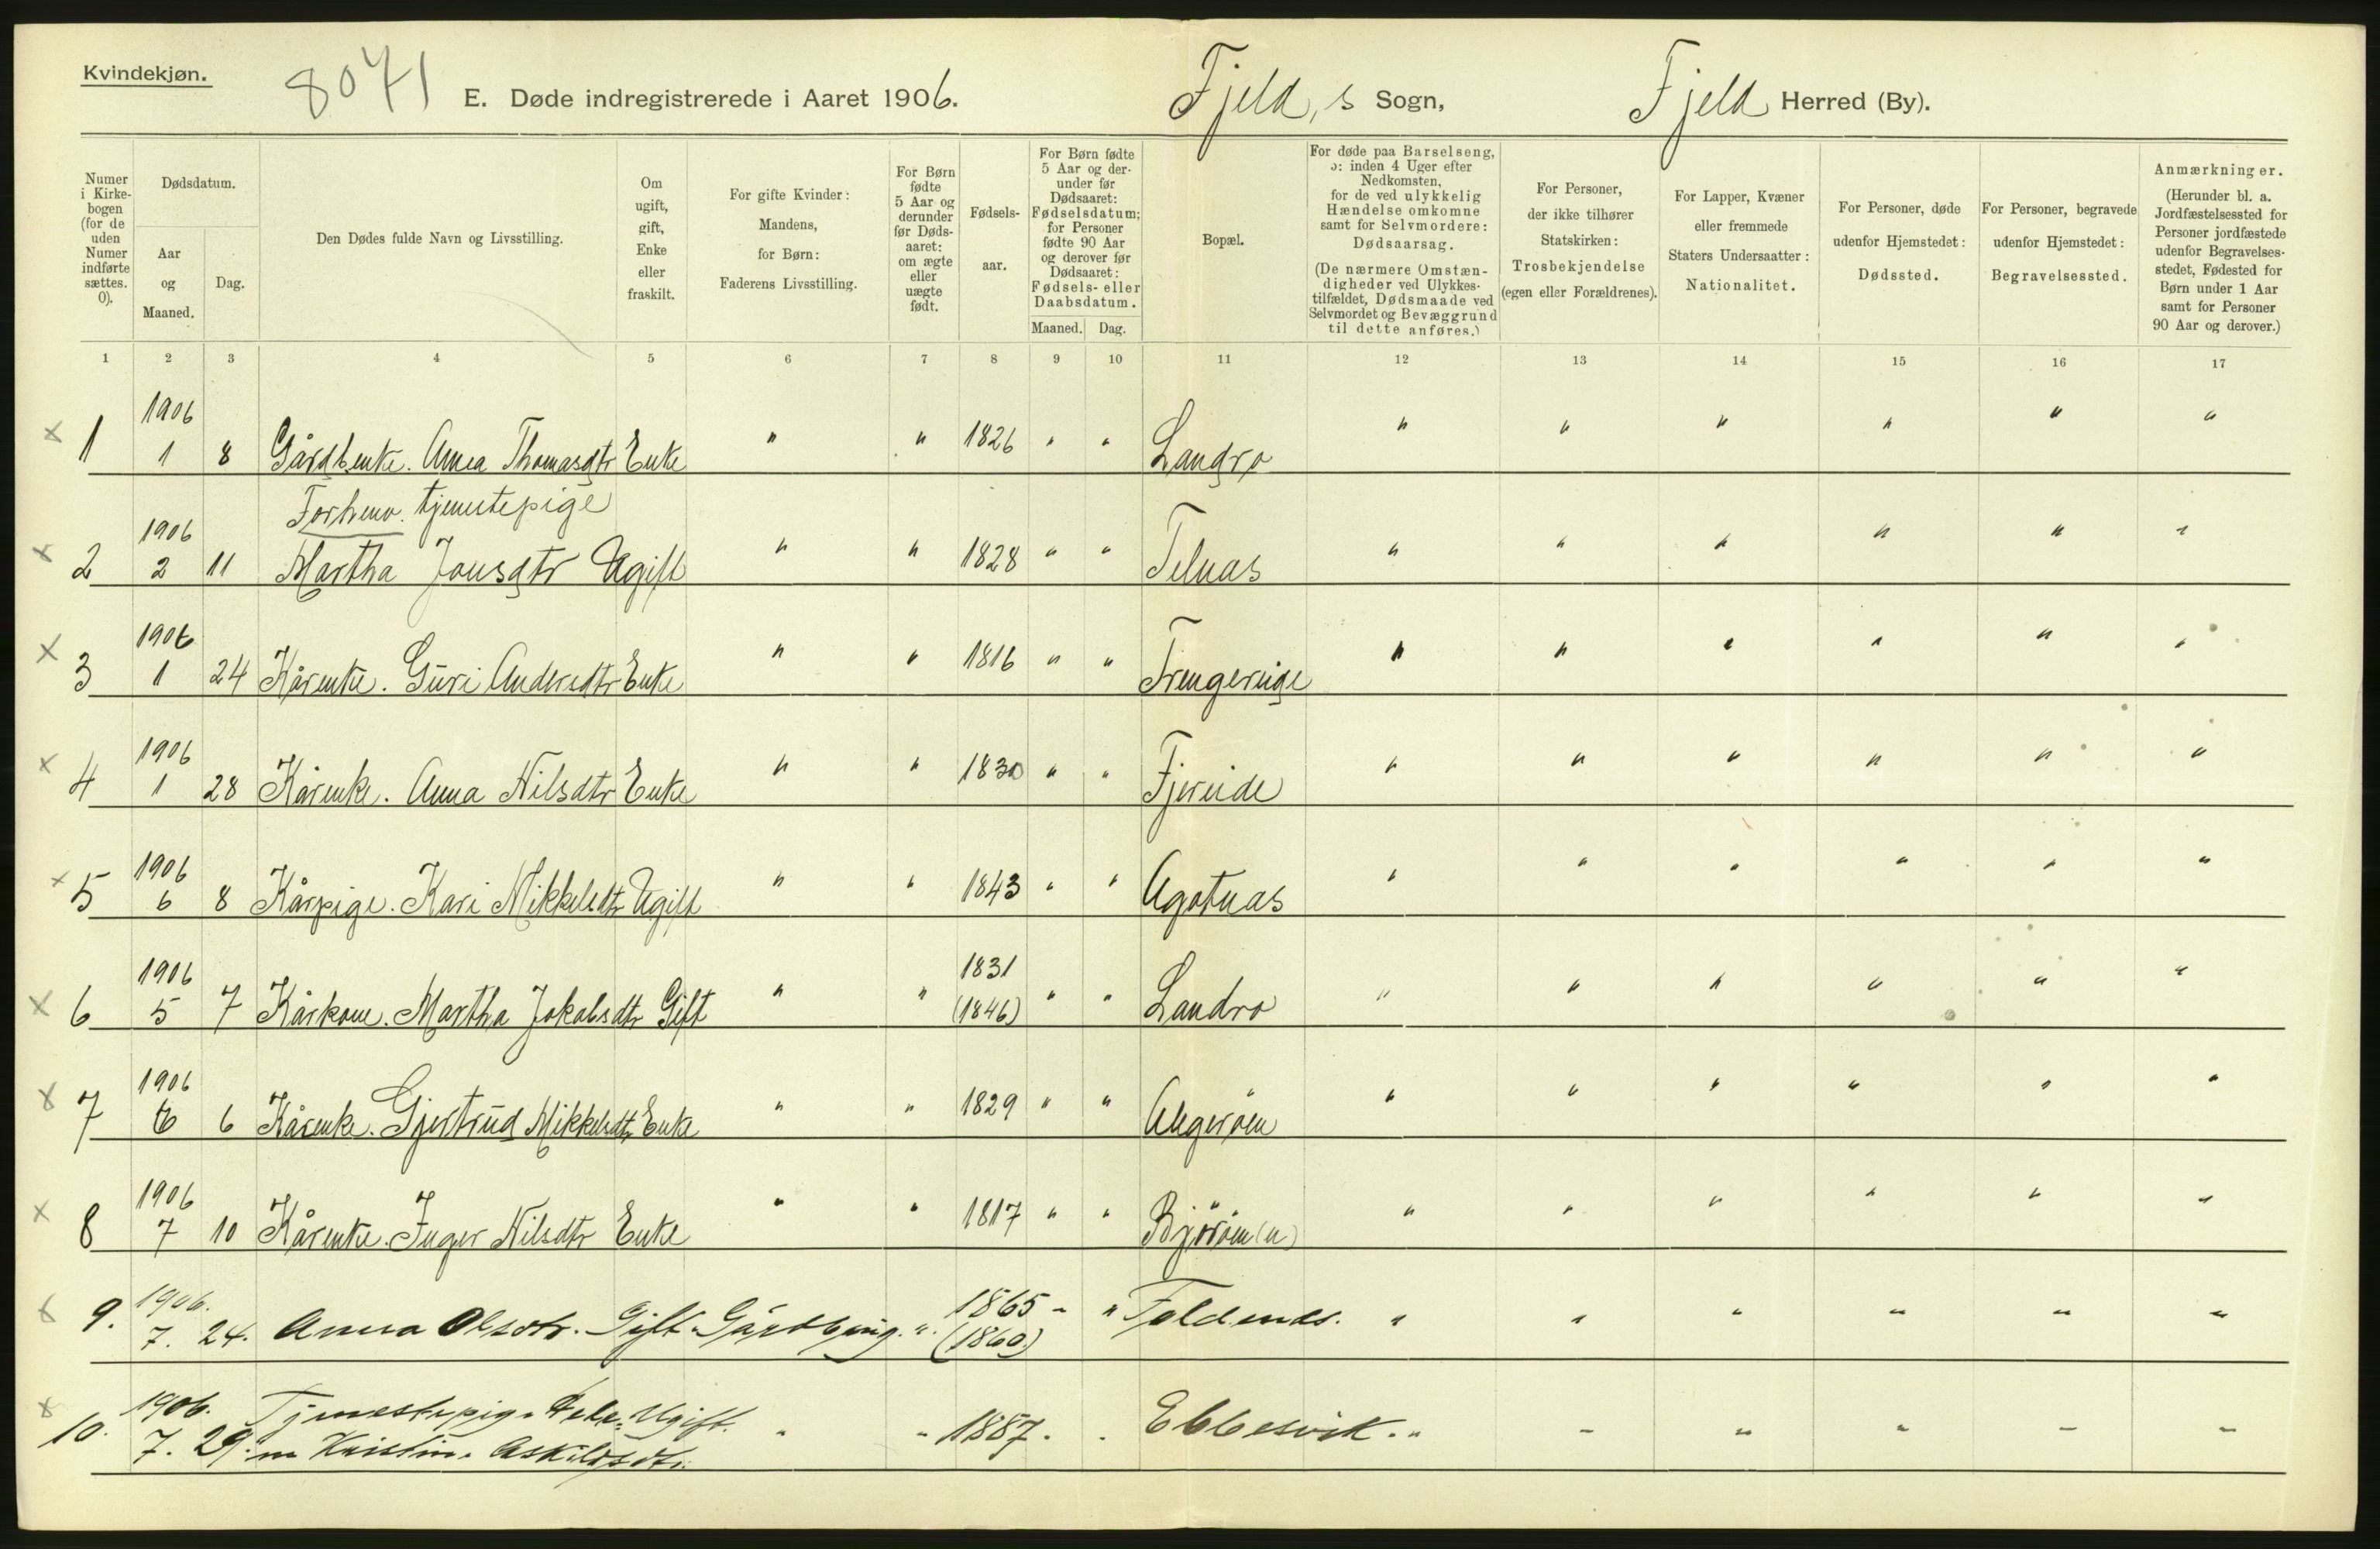 Kvindekjøn.
8071
E. Døde indregistrerede i Aaret 1906.
Fjeld,s Sogn, Fjeld Herred (By).
Numer i Kirkebogen (for de uden Numer indførte sættes. 0).
Dødsdatum.
Aar og Maaned.
Dag.
Den Dødes fulde Navn og Livsstilling.
Om ugift, gift, Enke eller fraskilt.
For gifte Kvinder: Mandens, for Børn: Faderens Livsstilling.
For Børn fødte 5 Aar og derunder før Dødsaaret: om ægte eller uægte født.
Fødselsaar.
For Børn fødte 5 Aar og derunder før Dødsaaret: Fødselsdatum; for Personer fødte 90 Aar og derover før Dødsaaret: Fødsels- eller Daabsdatum.
Maaned. Dag.
Bopæl.
For døde paa Barselseng, ɔ: inden 4 Uger efter Nedkomsten, for de ved ulykkelig Hændelse omkomne samt for Selvmordere: Dødsaarsag.
(De nærmere Omstændigheder ved Ulykkestilfældet, Dødsmaade ved Selvmordet og Bevæggrund til dette anføres.)
For Personer, der ikke tilhører Statskirken: Trosbekjendelse (egen eller Forældrenes).
For Lapper, Kvæner eller fremmede Staters Undersaatter: Nationalitet.
For Personer, døde udenfor Hjemstedet: Dødssted.
For Personer, begravede udenfor Hjemstedet: Begravelsessted.
Anmærkninger.
(Herunder bl. a. Jordfæstelsessted for Personer jordfæstede udenfor Begravelsesstedet, Fødested for Børn under 1 Aar samt for Personer 90 Aar og derover.)
1 2 3 4 5 6 7 8 9 10 11 12 13 14 15 16 17
1906
1 1 8 Gårdbenke. Anna Thomasdtr Enke " " 1826 " " Landro " " " " " "
Forhenv. tjenestepige
1906
2 2 11 Martha Jonsdtr Ugift " " 1828 " " Telnas " " " " " "
1906
3 1 24 Kårenke. Guri Andersdtr Enke " " 1816 " " Trengereide " " " " " "
1906
4 1 28 Kårenke. Anna Nilsdtr Enke " " 1830 " " Fjereide " " " " " "
1906
5 6 8 Kårpige. Kari Mikkelsdtr Ugift " " 1843 " " Agotnas " " " " " "
1906 1831
6 5 7 Kårkone. Martha Jakobsdtr Gift " " (1846) " " Landro " " " " " "
1906
7 6 6 Kårenke. Gjertrud Mikkelsdtr Enke " " 1829 " " Algeröen " " " " " "
1906
8 7 10 Kårenke. Inger Nilsdtr Enke " " 1817 " " Björöen (n) " " " " " "
1906. 1865 - "
9. 7. 24. Anna Olsdtr. Gift. Gårdbrug. ". (1860.) Foldnes. " " " " " "
1906. Tjenestepige Ugift.
10. 7. 29. Kristine Askildsdtr. " " 1887. . Ebbesvik. " - " " - -